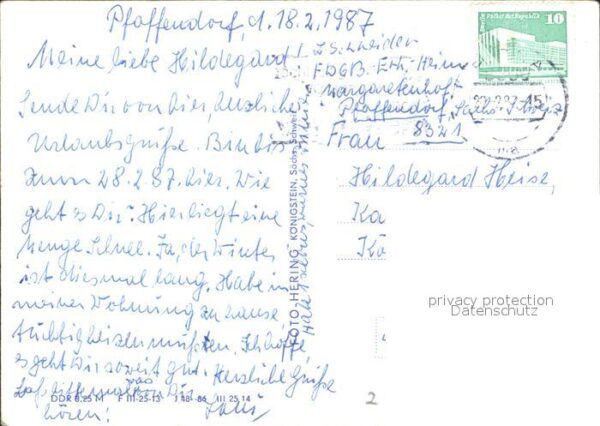 Pfaffendorf, d. 18.2.1987
Meine liebe Hildegard!
Sende Dir von hier herzliche
Urlaubsgrüße. Bin bis
zum 28.2.87 hier. Wie
geht es Dir? Hier liegt eine
Menge Schnee. Ja, der Winter
ist diesmal lang. Habe in
meiner Wohnung zu Hause
tüchtig heizen müssen. Ich hoffe,
es geht Dir soweit gut. Herzliche Grüße
Laß bitte mal was von Dir
hören!
FOTO „HERING“ KÖNIGSTEIN, Sächs. Schweiz
DDR 0,25 M F III-25-13 86 III 25 14
Schneider
FDGB-Erh.-Heim
"Margaretenhof"
Pfaffendorf, Sächs. Schweiz
8321
Frau
Hildegard Heise,
Ka
Kö
10
Palast der Republik
privacy protection
Datenschutz
2